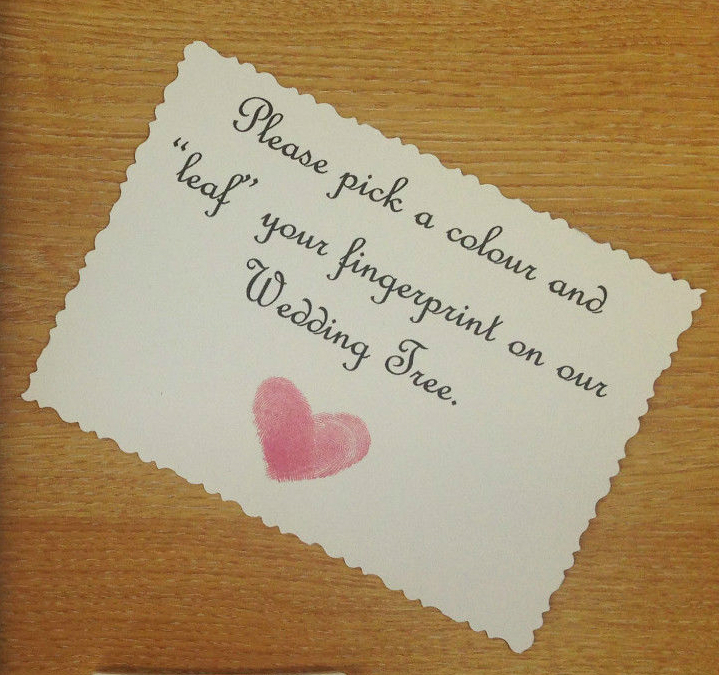 Please pick a colour and
“leaf” your fingerprint on our
Wedding Tree.